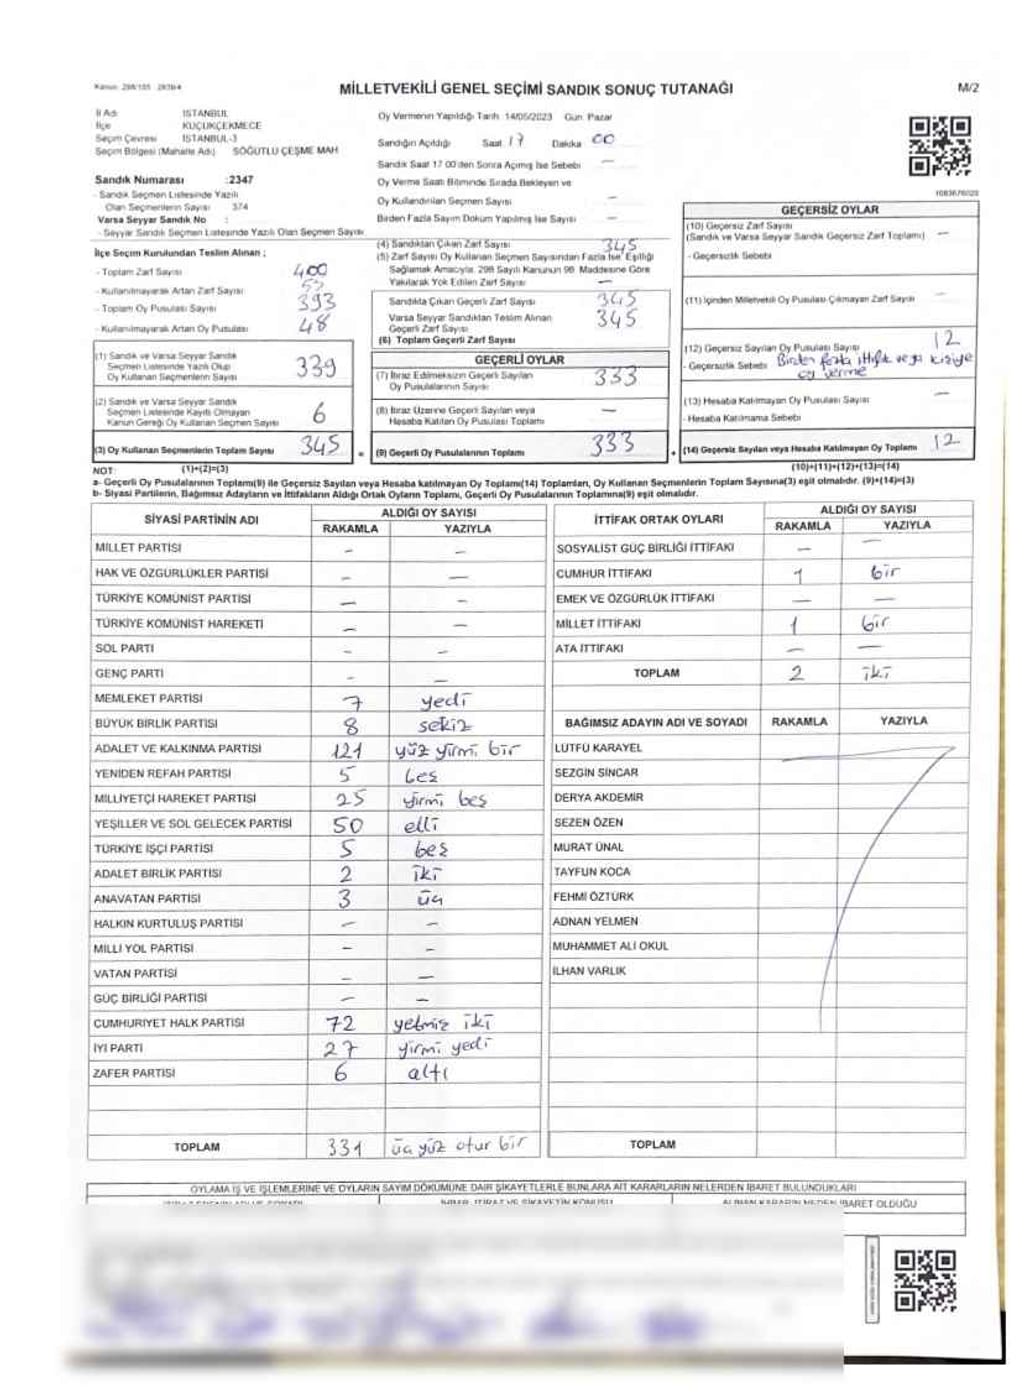 Kanun: 298/105 283b4
MİLLETVEKİLİ GENEL SEÇİMİ SANDIK SONUÇ TUTANAĞI
M/2
İl Adı İSTANBUL
İlçe KÜÇÜKÇEKMECE
Seçim Çevresi İSTANBUL-3
Seçim Bölgesi (Mahalle Adı) SÖĞÜTLÜ ÇEŞME MAH
Sandık Numarası :2347
- Sandık Seçmen Listesinde Yazılı
Olan Seçmenlerin Sayısı 374
Varsa Seyyar Sandık No :
- Seyyar Sandık Seçmen Listesinde Yazılı Olan Seçmen Sayısı
Oy Vermenin Yapıldığı Tarih 14/05/2023 Gün Pazar
Sandığın Açıldığı Saat 17 Dakika 00
Sandık Saat 17 00'den Sonra Açımış İse Sebebi —
Oy Verme Saati Bitiminde Sırada Bekleyen ve
Oy Kullandırılan Seçmen Sayısı —
Birden Fazla Sayım Döküm Yapılmış İse Sayısı —
1083676028
İlçe Seçim Kurulundan Teslim Alınan ;
- Toplam Zarf Sayısı 400
- Kullanılmayarak Artan Zarf Sayısı 55
- Toplam Oy Pusulası Sayısı 393
- Kullanılmayarak Artan Oy Pusulası 48
(1) Sandık ve Varsa Seyyar Sandık
Seçmen Listesinde Yazılı Olup
Oy Kullanan Seçmenlerin Sayısı 339
(2) Sandık ve Varsa Seyyar Sandık
Seçmen Listesinde Kayıtlı Olmayan
Kanun Gereği Oy Kullanan Seçmen Sayısı 6
(3) Oy Kullanan Seçmenlerin Toplam Sayısı 345 =
(4) Sandıktan Çıkan Zarf Sayısı 345
(5) Zarf Sayısı Oy Kullanan Seçmen Sayısından Fazla İse Eşitliği
Sağlamak Amacıyla, 298 Sayılı Kanunun 98. Maddesine Göre
Yakılarak Yok Edilen Zarf Sayısı —
Sandıkta Çıkan Geçerli Zarf Sayısı 345
Varsa Seyyar Sandıktan Teslim Alınan
Geçerli Zarf Sayısı 345
(6) Toplam Geçerli Zarf Sayısı
GEÇERLİ OYLAR
(7) İtiraz Edilmeksizin Geçerli Sayılan
Oy Pusulalarının Sayısı 333
(8) İtiraz Üzerine Geçerli Sayılan veya
Hesaba Katılan Oy Pusulası Toplamı —
(9) Geçerli Oy Pusulalarının Toplamı 333 +
GEÇERSİZ OYLAR
(10) Geçersiz Zarf Sayısı
(Sandık ve Varsa Seyyar Sandık Geçersiz Zarf Toplamı) —
- Geçersizlik Sebebi
(11) İçinden Milletvekili Oy Pusulası Çıkmayan Zarf Sayısı —
(12) Geçersiz Sayılan Oy Pusulası Sayısı 12
- Geçersizlik Sebebi Birden fazla ittifak veya kişiye
oy verme
(13) Hesaba Katılmayan Oy Pusulası Sayısı —
- Hesaba Katılmama Sebebi
(14) Geçersiz Sayılan veya Hesaba Katılmayan Oy Toplamı 12
NOT: (1)+(2)=(3)
(10)+(11)+(12)+(13)=(14)
a- Geçerli Oy Pusulalarının Toplamı(9) ile Geçersiz Sayılan veya Hesaba katılmayan Oy Toplamı(14) Toplamları, Oy Kullanan Seçmenlerin Toplam Sayısına(3) eşit olmalıdır. (9)+(14)=(3)
b- Siyasi Partilerin, Bağımsız Adayların ve İttifakların Aldığı Ortak Oyların Toplamı, Geçerli Oy Pusulalarının Toplamına(9) eşit olmalıdır.
SİYASİ PARTİNİN ADI
ALDIĞI OY SAYISI
RAKAMLA YAZIYLA
MİLLET PARTİSİ — —
HAK VE ÖZGÜRLÜKLER PARTİSİ — —
TÜRKİYE KOMÜNİST PARTİSİ — —
TÜRKİYE KOMÜNİST HAREKETİ — —
SOL PARTİ — —
GENÇ PARTİ — —
MEMLEKET PARTİSİ 7 yedi
BÜYÜK BİRLİK PARTİSİ 8 sekiz
ADALET VE KALKINMA PARTİSİ 121 yüz yirmi bir
YENİDEN REFAH PARTİSİ 5 beş
MİLLİYETÇİ HAREKET PARTİSİ 25 yirmi beş
YEŞİLLER VE SOL GELECEK PARTİSİ 50 elli
TÜRKİYE İŞÇİ PARTİSİ 5 beş
ADALET BİRLİK PARTİSİ 2 iki
ANAVATAN PARTİSİ 3 üç
HALKIN KURTULUŞ PARTİSİ — —
MİLLİ YOL PARTİSİ — —
VATAN PARTİSİ — —
GÜÇ BİRLİĞİ PARTİSİ — —
CUMHURİYET HALK PARTİSİ 72 yetmiş iki
İYİ PARTİ 27 yirmi yedi
ZAFER PARTİSİ 6 altı
TOPLAM 331 üç yüz otuz bir
İTTİFAK ORTAK OYLARI
ALDIĞI OY SAYISI
RAKAMLA YAZIYLA
SOSYALİST GÜÇ BİRLİĞİ İTTİFAKI — —
CUMHUR İTTİFAKI 1 bir
EMEK VE ÖZGÜRLÜK İTTİFAKI — —
MİLLET İTTİFAKI 1 bir
ATA İTTİFAKI — —
TOPLAM 2 iki
BAĞIMSIZ ADAYIN ADI VE SOYADI RAKAMLA YAZIYLA
LÜTFÜ KARAYEL
SEZGİN SİNCAR
DERYA AKDEMİR
SEZEN ÖZEN
MURAT ÜNAL
TAYFUN KOCA
FEHMİ ÖZTÜRK
ADNAN YELMEN
MUHAMMET ALİ OKUL
İLHAN VARLIK
TOPLAM
OYLAMA İŞ VE İŞLEMLERİNE VE OYLARIN SAYIM DÖKÜMÜNE DAİR ŞİKAYETLERLE BUNLARA AİT KARARLARIN NELERDEN İBARET BULUNDUKLARI